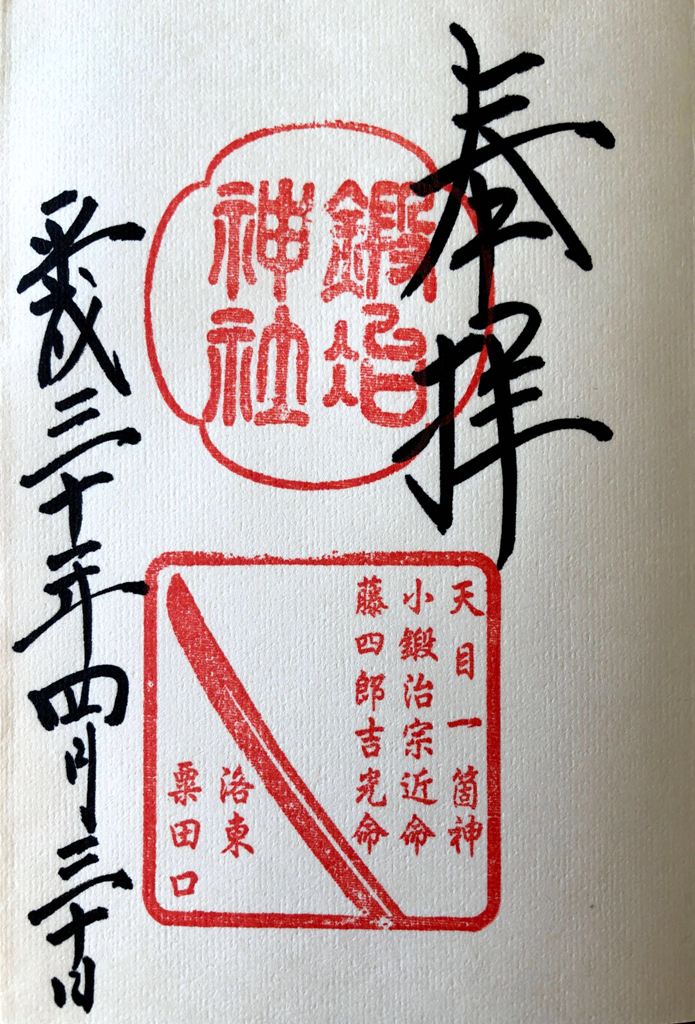 奉拝
鍛冶
神社
天目一箇神
小鍛治宗近命
藤四郎吉光命
洛東
粟田口
平成三十年四月三十日